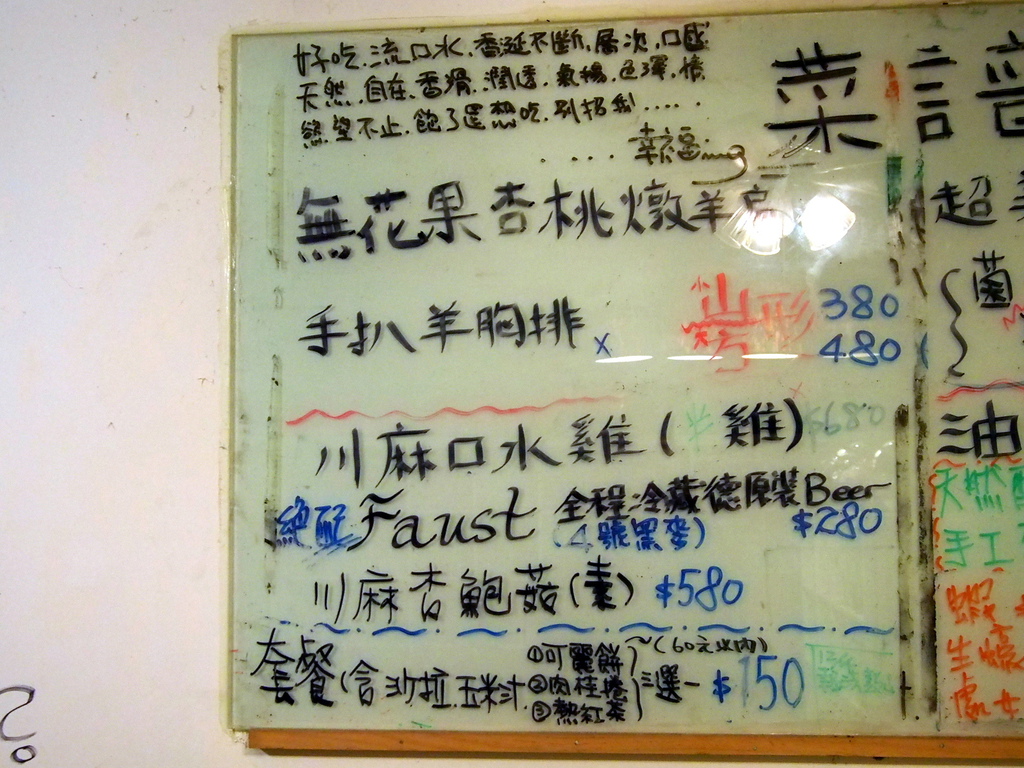 好吃.流口水.香涎不斷.層次.口感
天然.自在.香滑.潤透.氣機.色澤.情
慾望不止.飽了還想吃.別招我.....
....幸福ing
菜譜
無花果杏桃燉羊肩
手扒羊胸排 x
小山形 380
大方 480
川麻口水雞(半雞) $680
絕配 Faust 全程冷藏德原裝Beer
(4號黑麥) $280
川麻杏鮑菇(素) $580
套餐(含沙拉.玉米汁
①可麗餅
②肉桂捲
③熱紅茶
三選一
~(60元以內)
$150
超
菌
油
天然
手工
生
處女